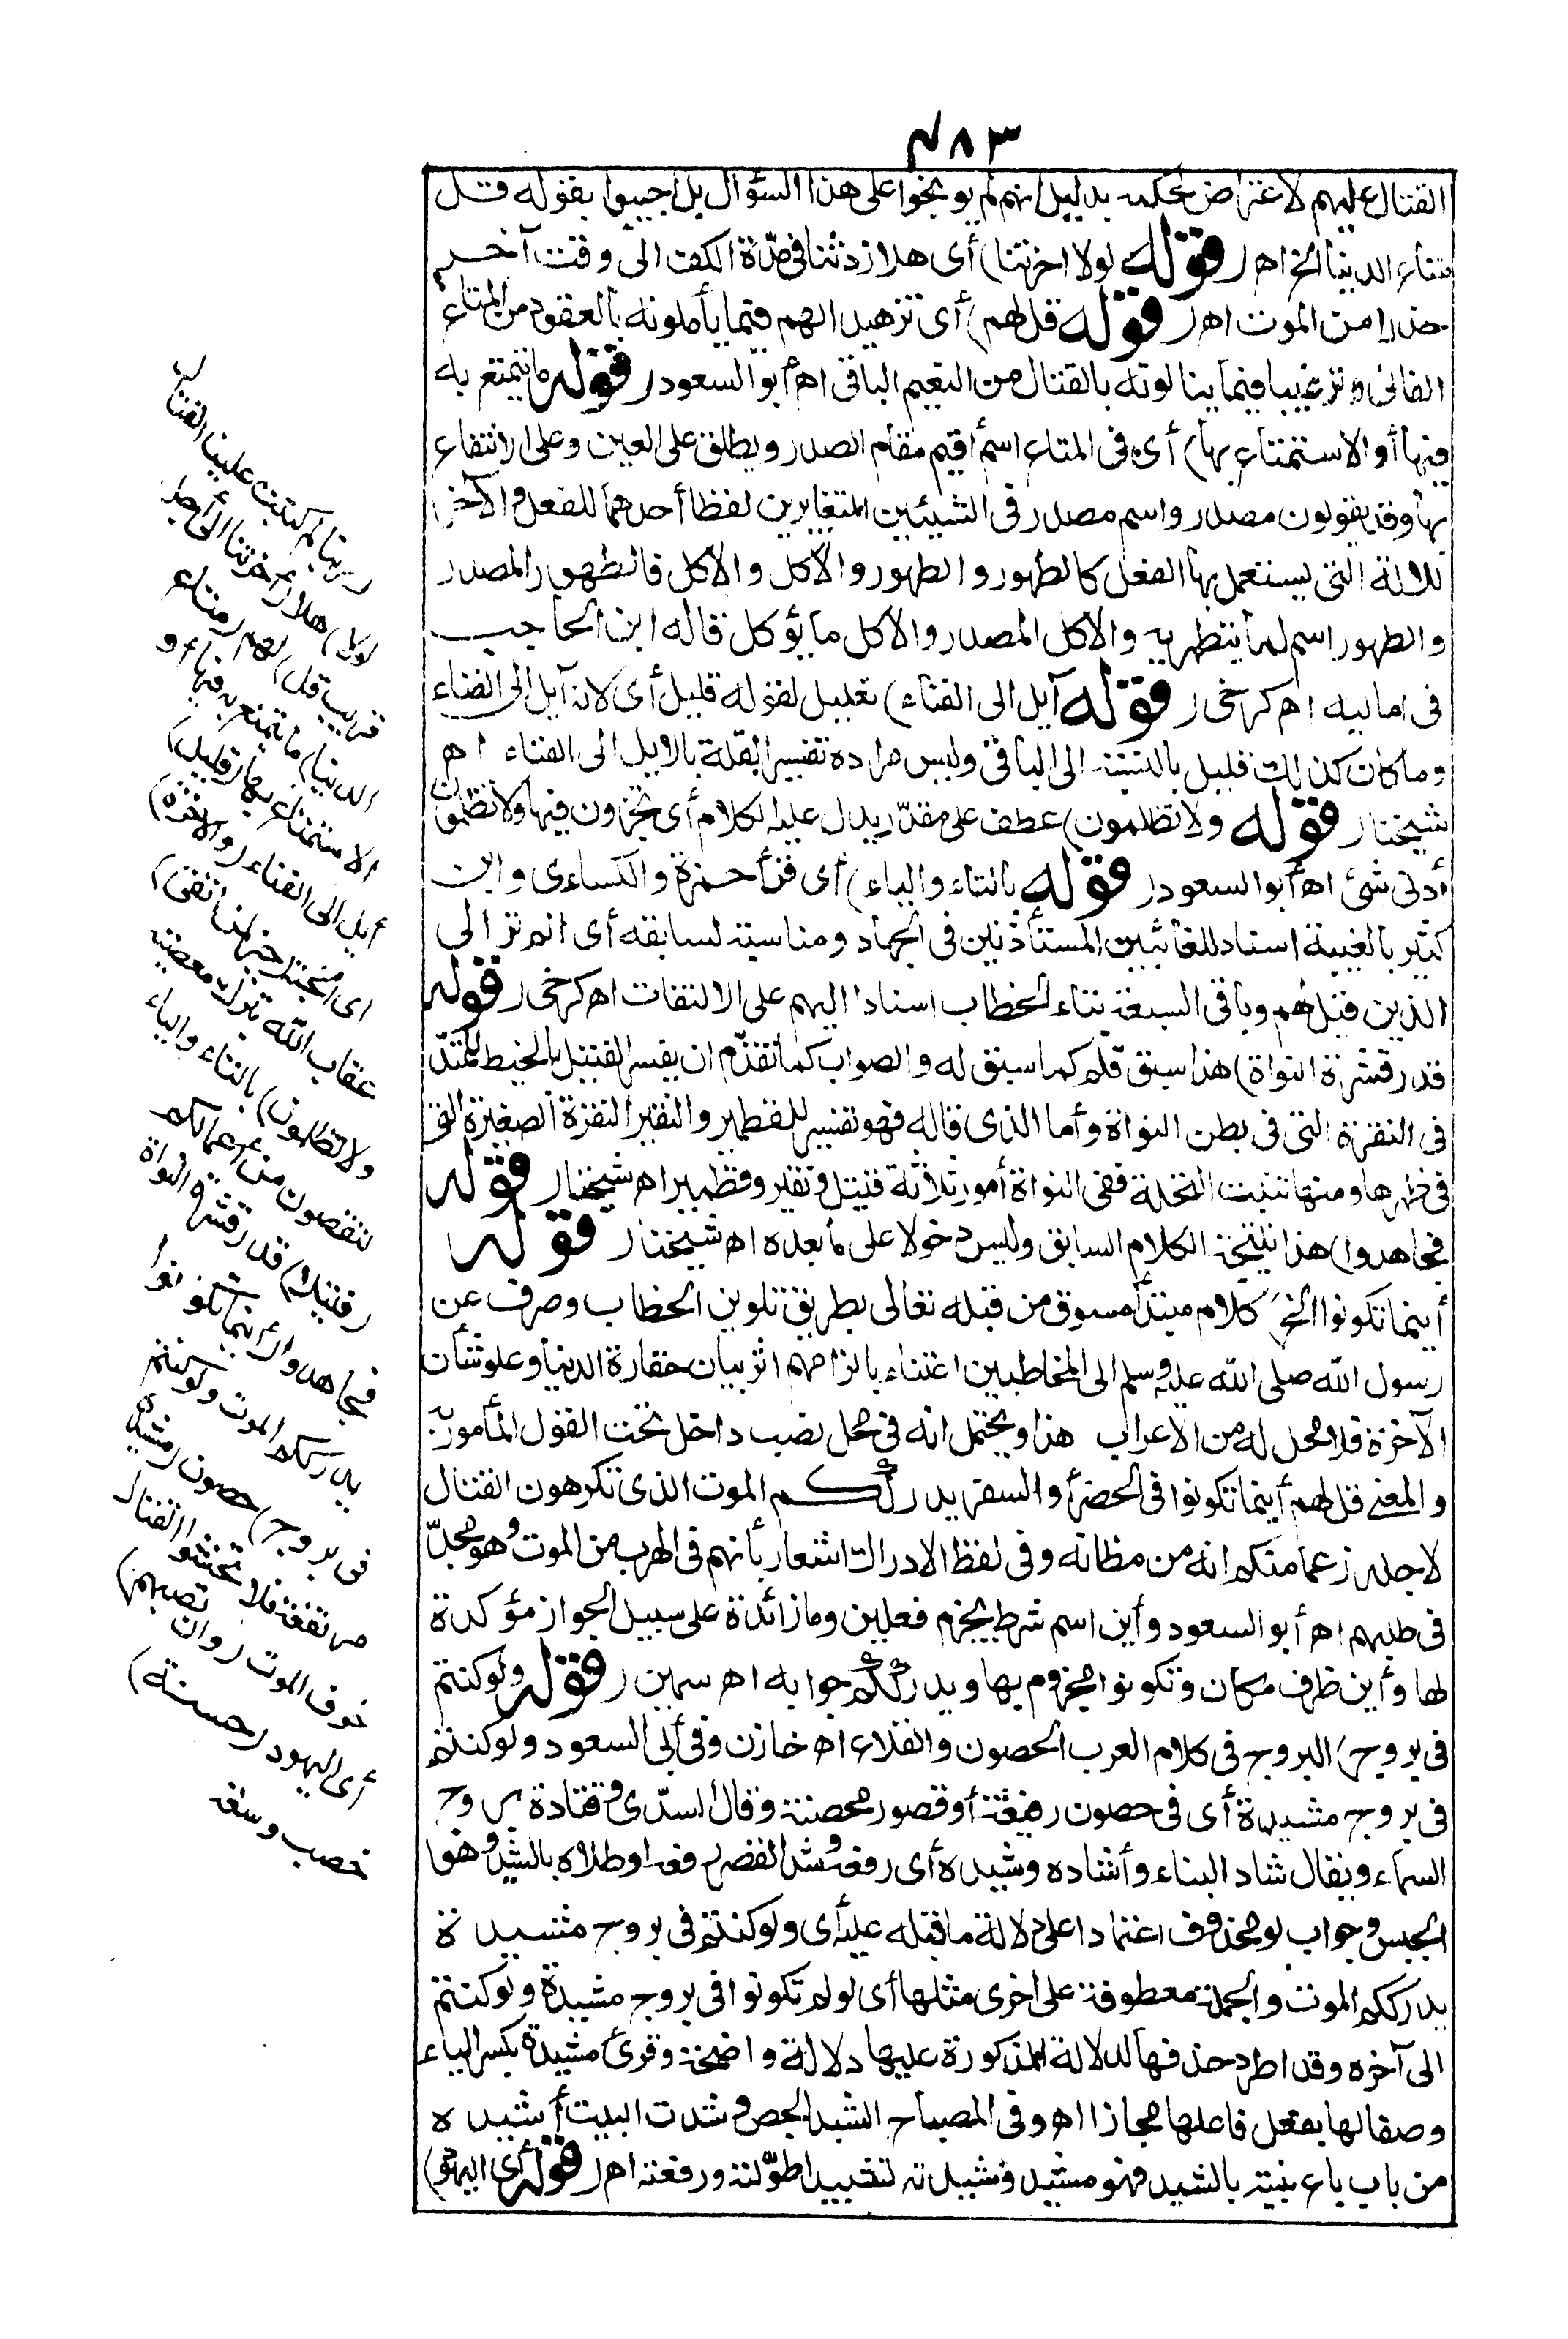 ٤٨٣
القتال عليهم لا عتراض لحكمه بدليل انهم لم يوبخوا على هذا السؤال بل اجيبوا بقوله قل
متاع الدنيا الخ اهـ ( قوله لولا اخرتنا) أى هلا زدتنا فى مدّة الكف الى وقت آخر
حذرا من الموت اهـ ( قوله قل لهم) أى تزهيدا لهم فيما يأملونه بالقعود من المتاع
الفانى وترغيبا فيما ينالونه بالقتال من النعيم الباقى اهـ أبو السعود ( قوله ما يتمتع به
فيها أو الاستمتاع بها) أى فى المتاع اسم أقيم مقام المصدر ويطلق على العين وعلى الانتفاع
بها وقد يقولون مصدر واسم مصدر فى الشيئين المتغايرين لفظا أحدهما للفعل والآخر
للالة التى يستعمل بها الفعل كالطهور والطهور والاكل والاكل فالطهور المصدر
والطهور اسم لما يتطهر به والاكل المصدر والاكل ما يؤكل قاله ابن الحاجب
فى اماليه اهـ كرخى ( قوله آيل الى الفناء) تعليل لقوله قليل أى لانه آيل الى الفناء
وما كان كذلك قليل بالنسبة الى الباقى وليس مراده تفسير القلة بالايل الى الفناء اهـ
شيخنا ( قوله ولا تظلمون) عطف على مقدّر يدل عليه الكلام أى تجزون فيها ولا تظلمون
أدنى شئ اهـ أبو السعود ( قوله بالتاء والياء) أى قرأ حمزة والكساءى وابن
كثير بالغيبة اسناد للغائبين المستأذنين فى الجهاد ومناسبة لسابقه أى الم تر الى
الذين قيل لهم وباقى السبعة بتاء الخطاب اسنادا اليهم على الالتفات اهـ كرخى ( قوله
قدر قشرة النواة) هذا سبق قلم كما سبق له والصواب كما تقدّم ان يفسر الفتيل بالخيط الممتدّ
فى النقرة التى فى بطن النواة وأما الذى قاله فهو تفسير للقطمير والنقير النقرة الصغيرة التى
فى ظهرها ومنها تنبت النخلة ففى النواة أمور ثلاثة فتيل ونقير وقطمير اهـ شيخنا ( قوله
فجاهدوا) هذا نتيجة الكلام السابق وليس دخولا على ما بعده اهـ شيخنا ( قوله
أينما تكونوا الخ) كلام مبتدأ مسوق من قبله تعالى بطريق تلوين الخطاب وصرف عن
رسول الله صلى الله عليه وسلم الى المخاطبين اعتناء بالزامهم اثر بيان حقارة الدنيا وعلو شأن
الآخرة فلا محل له من الاعراب هذا ويحتمل انه فى محل نصب داخل تحت القول المأمور به
والمعنى قل لهم أينما تكونوا فى الحضر أو السفر يدرككم الموت الذى تكرهون القتال
لاجله زعما منكم انه من مظانه وفى لفظ الادراك اشعار بأنهم فى الهرب من الموت وهو مجدّ
فى طلبهم اهـ أبو السعود وأين اسم شرط يجزم فعلين وما زائدة على سبيل الجواز مؤكدة
لها وأين ظرف مكان وتكونوا مجزوم بها ويدرككم جوابه اهـ سمين ( قوله ولو كنتم
فى بروج) البروج فى كلام العرب الحصون والقلاع اهـ خازن وفى أبى السعود ولو كنتم
فى بروج مشيدة أى فى حصون رفيعة أو قصور محصنة وقال السدّى وقتادة بروج
السماء ويقال شاد البناء وأشاده وشيده أى رفعه وشد القصر رفعه او طلاه بالشيد وهو
الجبس وجواب لو محذوف اعتمادا على دلالة ما قبله عليه أى ولو كنتم فى بروج مشيدة
يدرككم الموت والجملة معطوفة على اخرى مثلها أى لو لم تكونوا فى بروج مشيدة ولو كنتم
الى آخره وقد اطرد حذفها لدلالة المذكورة عليها دلالة واضحة وقرئ مشيدة بكسر الياء
وصفا لها بفعل فاعلها مجازا اهـ وفى المصباح الشيد الجص وشدت البيت أشيده
من باب باع بنيته بالشيد فهو مشيد وشيدته تشييدا طوّلته ورفعته اهـ ( قوله أى اليهود)
ربنا لم كتبت علينا القتال
لولا) هلا (أخرتنا الى أجل
قريب قل) لهم (متاع
الدنيا) ما يتمتع به فيها او
الاستمتاع بها (قليل)
آيل الى الفناء (والآخرة)
اى الجنة (خير لمن اتقى)
عقاب الله بترك معصيته
ولا تظلمون) بالتاء والياء
تنقصون من أعمالكم
(فتيلا) قدر قشرة النواة
فجاهدوا (أينما تكونوا
يدرككم الموت ولو كنتم
فى بروج) حصون (مشيدة)
مرتفعة فلا تخشوا القتال
خوف الموت (وان تصبهم)
أى اليهود (حسنة)
خصب وسعة